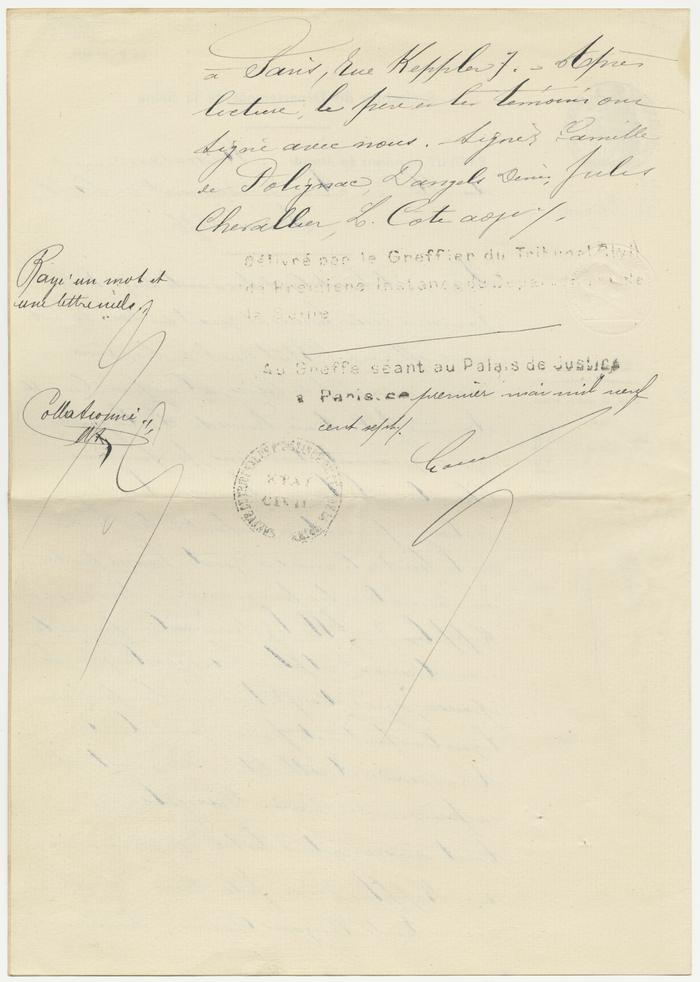 à Paris, rue Keppler 7. - Après
lecture, le père et les témoins ont
signé avec nous. Signé: Camille
de Polignac, Dangels Denis, Jules
Chevallier, L. Cote adjt/.
Délivré par le Greffier du Tribunal Civil
de Première Instance du Département de
la Seine
Rayé un mot et
une lettre nuls
Au Greffe séant au Palais de Justice
à Paris, ce premier mai mil neuf
cent sept/.
Collationné
ETAT
CIVIL